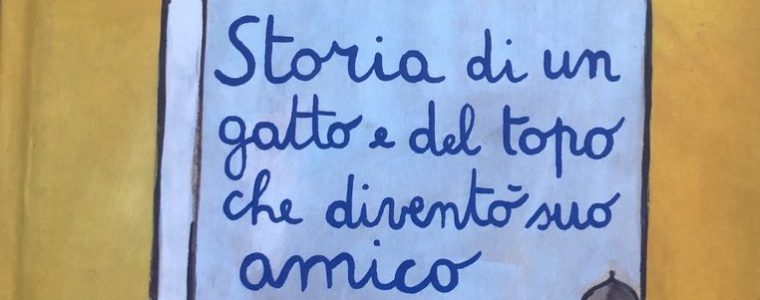 Storia di un
gatto e del topo
che diventò suo
amico